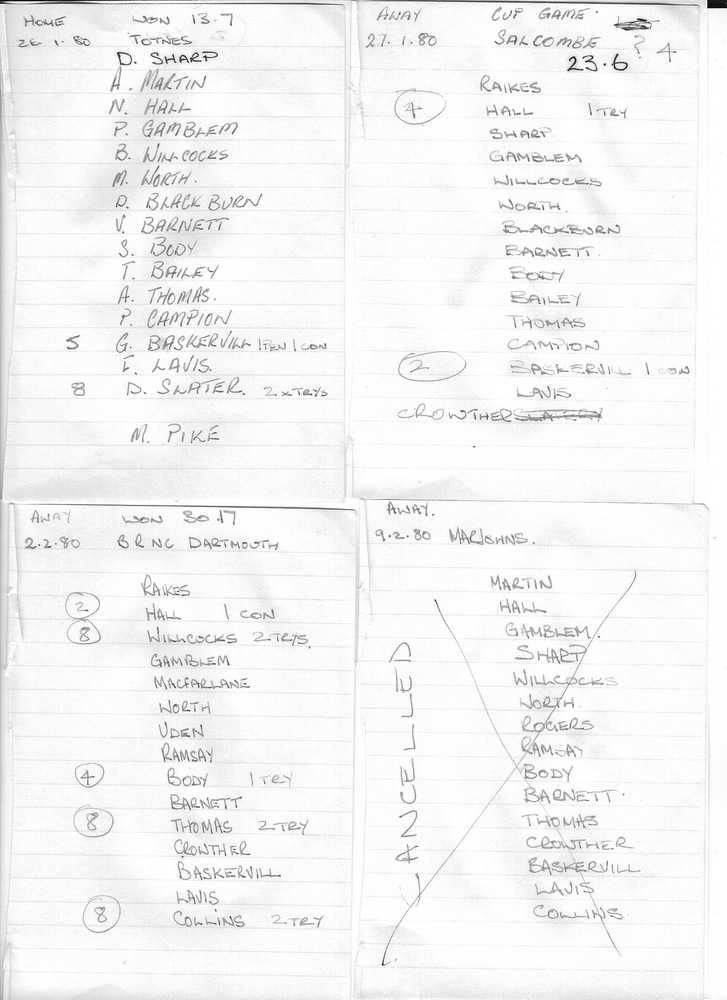 HOME WON 13-7
26.1.80 TOTNES
D. SHARP
A. MARTIN
N. HALL
P. GAMBLEM
B. WILLCOCKS
M. WORTH.
D. BLACKBURN
V. BARNETT
S. BODY
T. BAILEY
A. THOMAS.
P. CAMPION
5 G. BASKERVILL 1 PEN 1 CON
LAVIS.
8 D. SLATER. 2 x TRYS
M. PIKE
AWAY CUP GAME.
27.1.80 SALCOMBE ? 4
23.6
RAIKES
4 HALL 1 TRY
SHARP.
GAMBLEM
WILLCOCKS
WORTH.
BLACKBURN
BARNETT.
BODY
BAILEY
THOMAS
CAMPION
2 BASKERVILL 1 CON
LAVIS
CROWTHER SLATER
AWAY WON 30.17
2.2.80 BRNC DARTMOUTH
RAIKES
2 HALL 1 CON
8 WILLCOCKS 2 TRYS.
GAMBLEM
MACFARLANE
WORTH
UDEN
RAMSAY
4 BODY 1 TRY
BARNETT
8 THOMAS 2 TRY
CROWTHER
BASKERVILL
LAVIS
8 COLLINS 2 TRY
AWAY.
9.2.80 MARJOHNS.
MARTIN
HALL
GAMBLEM.
SHARP
WILLCOCKS
WORTH.
ROGERS
RAMSAY
BODY
BARNETT.
THOMAS
CROWTHER
BASKERVILL
LAVIS
COLLINS
CANCELLED